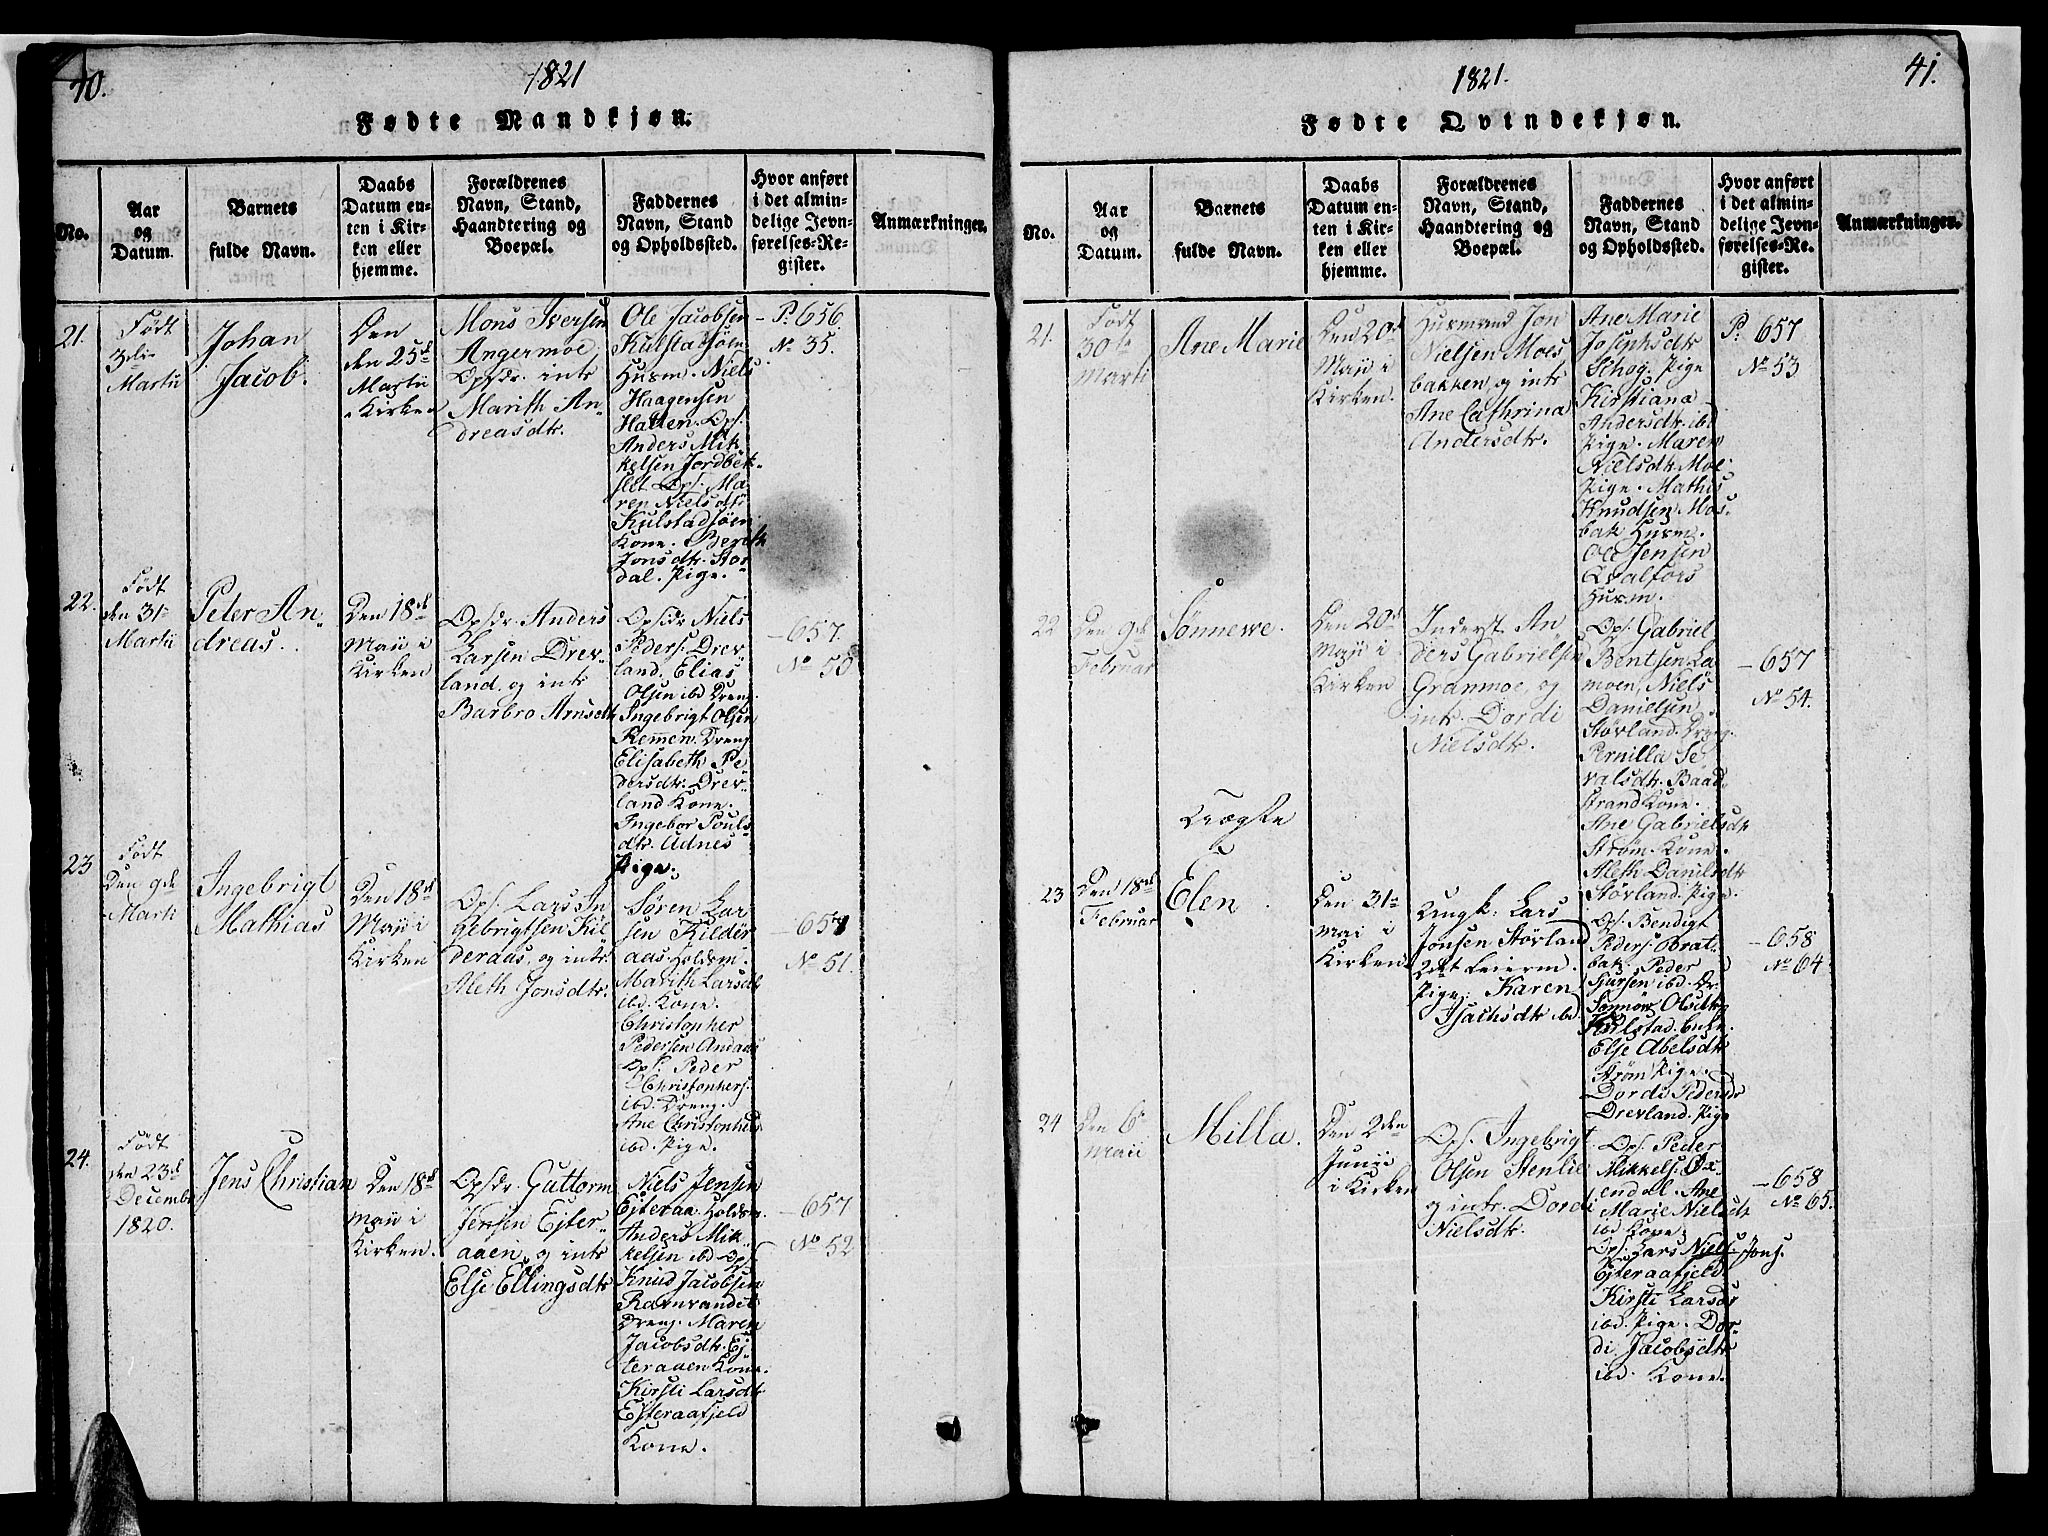 40.
1821
Fødte Mandkjøn.
No.
Aar
og
Datum.
Barnets
fulde Navn.
Daabs
Datum en-
ten i Kir-
ken eller
hjemme.
Forældrenes
Navn, Stand,
Haandtering og
Boepæl.
Faddernes
Navn, Stand
og Opholdssted.
Hvor anført
i det almin-
delige Jevn-
førelses-Re-
gister.
Anmærkninger.
21.
Født
3die
Martii
Johan
Jacob.
Den
den 25de
Martii
i Kirken
Mons Iversen
Angermoe
Opsdr. intr
Marith An-
dreasdtr.
Ole Jacobsen
Kulstadsøen
Husm. Niels
Haagensen
Halten. Ops.
Anders Mik-
kelsen Jordbek-
slet Ops. Ma-
ren Nielsdtr
Kulstadsøen
Kone. Berith
Jonsdtr. Stor-
dal. Pige.
P. 656
No 35.
22.
Født
den 31te
Martii
Peter An-
dreas.
Den 18de
Maii i
Kirken
Opsdr. Anders
Larsen Drev-
land, og intr
Barbro Arnsdtr
Opsdr Niels
Peders. Drev-
land. Elias
Olsen ibd Dreng.
Ingebrigt Olsen
Remen. Dreng
Elisabeth Pe-
dersdtr. Drev-
land Kone.
Ingebor Pouls-
dtr. Adnes
Pige.
657.
No 50
23
Født
Den 9de
Marti
Ingebrigt
Mathias
Den 18de
Maii i
Kirken
Ops. Lars In-
gebrigtsen Kil-
deraas, og intr.
Aleth Jonsdtr.
Søren Lar-
sen Kilder-
aas. Holdsm.
Marith Larsdtr
ibd. Kone.
Christopher
Pedersen Andaas
Ops. Peder
Christophers.
ibd. Dreng.
Ane Christophersd
ibd. Pige.
657
No 51.
24.
Født
den 23de
Decembr
1820.
Jens Christian
Den 18de
Maii i
Kirken.
Opsdr. Guttorm
Jensen Ejter-
aaen, og intr
Else Ellingsdtr
Niels Jensen
Ejteraa. Holdsm.
Anders Mik-
kelsen ibd Ops.
Knud Jacobsen
Ravnvandet
Dreng. Maren
Jacobsdtr. Ej-
teraaen Kone.
Kirsti Larsdtr
Ejteraafjeld
Kone.
657
No 52
41.
1821.
Fødte Qvindekjøn.
No.
Aar
og
Datum.
Barnets
fulde Navn.
Daabs
Datum en-
ten i Kir-
ken eller
hjemme.
Forældrenes
Navn, Stand,
Haandtering og
Boepæl.
Faddernes
Navn, Stand
og Opholdssted.
Hvor anført
i det almin-
delige Jevn-
førelses-Re-
gister.
Anmærkninger.
21.
Født
30te
Marti
Ane Marie
Den 20de
Maii i
Kirken.
Husmand Jon
Nielsen Moes-
bakken, og intr
Ane Cathrina
Andersdtr.
Ane Marie
Josephsdtr
Schog. Pige
Kirstiana
Andersdtr. ibd
Pige. Maren
Nielsdtr. Moe.
Pige. Mathis
Knudsen Mos-
bak Husm.
Ole Jensen
Qvalfors
Husm.
P. 657
No 53
22
Den 9de
Februar
Sønnewe.
Den 20de
Maii i
Kirken
Inderst An-
ders Gabrielsen
Granmoe, og
intr. Dordi
Nielsdtr.
Ops. Gabriel
Bentsen La-
moen, Niels
Danielsen
Störland. Dreng.
Pernilla Se-
valsdtr. Baad-
strand Kone.
Ane Gabrielsdtr
Strøm. Kone.
Aleth Danielsdtr
Störland. Pige.
657
No 54.
Uægte
23
Den 18de
Februar
Elen
Den 31te
Mai i
Kirken
Ungk. Lars
Jonsen Störland
2det Leierm.
Pige. Karen
Isachsdtr ibd.
Ops. Bendigt
Peders. Brat-
bak. Peder
Sjursen ibd. Dr.
Sønnöw Olsdtr
Kulstad. Enke.
Else Abelsdtr
Strøm Pige.
Dordi Pedersdr
Drevland. Pige
658
No 64
24
Den 6te
Maii
Milla.
Den 2den
Junii
i Kirken
Ops. Ingebrigt
Olsen Stenlie
og intr. Dordi
Nielsdtr.
Ops. Peder
Mikkels. Øx-
endal. Ane
Marie Nielsdtr
ibd Kone.
Ops. Lars Niels. Jons.
Ejteraafjeld
Kirsti Larsdr
ibd. Pige. Dor-
di. Jacobsdtr
ibd. Kone.
658
No 65.